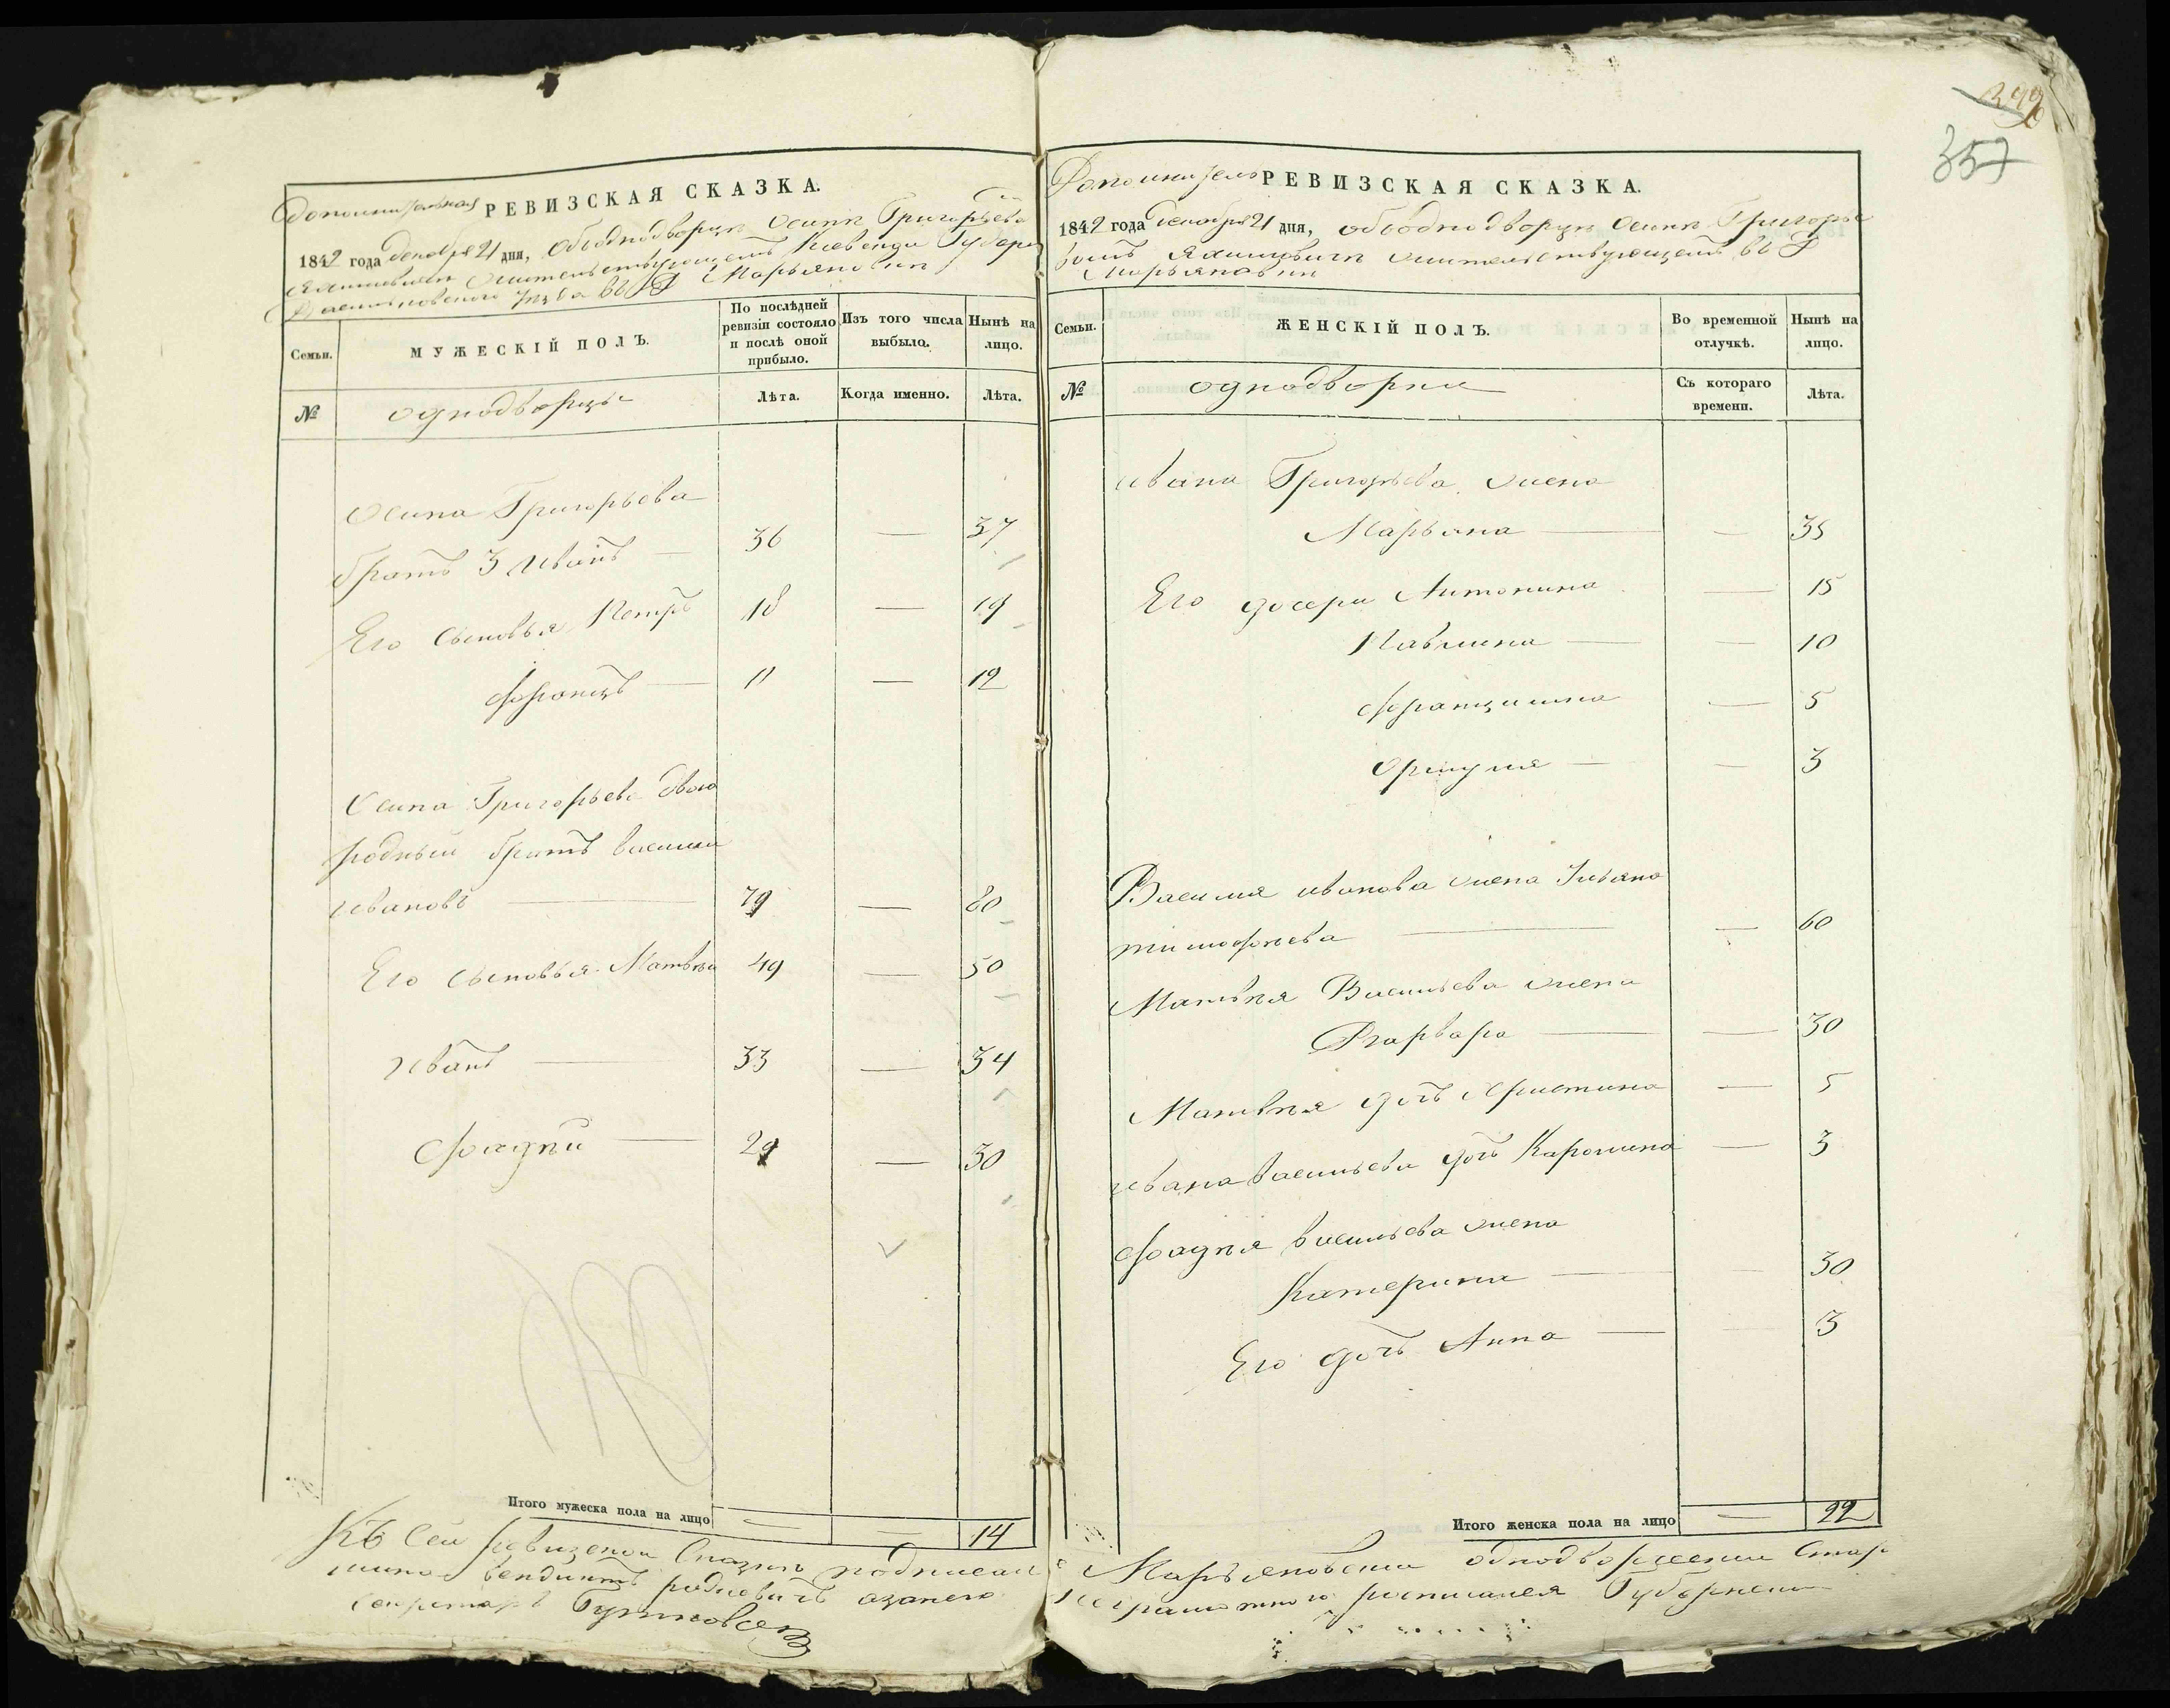 Дополнительная РЕВИЗСКАЯ СКАЗКА.
1842 года декабря 21 дня, объ однодворцѣ Осипѣ Григорьевѣ
жительствующемъ Кіевской Губерніи
Васильковскаго уѣзда въ Марьяновкѣ
Семьи.
МУЖЕСКІЙ ПОЛЪ.
По послѣдней ревизіи состояло и послѣ оной прибыло.
Изъ того числа выбыло.
Нынѣ на лицо.
№
однодворцы
Лѣта.
Когда именно.
Лѣта.
Осипа Григорьева
братъ 3 Иванъ — 36 — 37
Его сыновья Петръ 18 — 19
Францъ — 11 — 12
Осипа Григорьева двою
родный братъ Василій
Ивановъ — 79 — 80
Его сыновья Матвѣй 49 — 50
Иванъ — 33 — 34
Фадѣй — 29 — 30
Итого мужеска пола на лицо — — 14
Къ сей ревизской сказкѣ
секретарь
349
357
Дополнитель РЕВИЗСКАЯ СКАЗКА.
1842 года декабря 21 дня, объ однодворцѣ Осипѣ Григорье
вомъ жительствующемъ въ
Марьяновкѣ
Семьи.
ЖЕНСКІЙ ПОЛЪ.
Во временной отлучкѣ.
Нынѣ на лицо.
№
однодворки
Съ котораго времени.
Лѣта.
Ивана Григорьева жена
Марьяна — — 35
Его дочери Антонина — 15
Павлина — — 10
Францишка — 5
Оршуля — — 3
Василія Иванова жена Ульяна
Тимофѣева — — 60
Матвѣя Васильева жена
Варвара — — 30
Матвѣя дочь Христина — 5
Ивана Васильева дочь Каролина — 3
Фадѣя Васильева жена
Катерина — — 30
Его дочь Анна — — 3
Итого женска пола на лицо — 22
Марьяновскій однодворческій стар
неграмотнаго росписался Губернскій